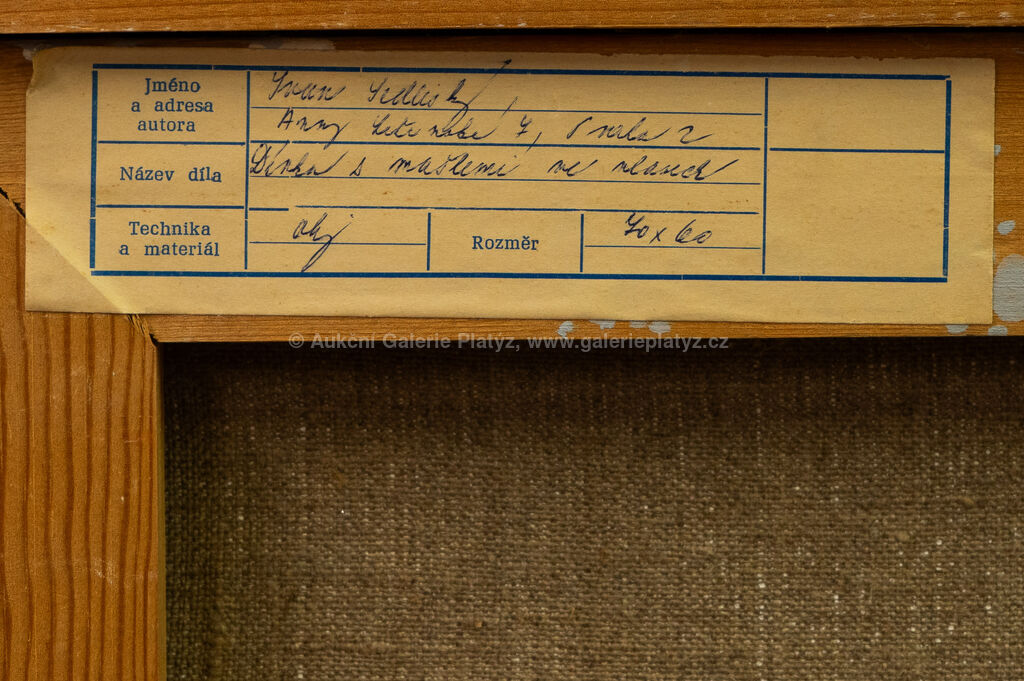 Jméno
a adresa
autora
Ivan Sedliský,
Anny Letenské 7, Praha 2
Název díla
Dívka s mašlemi ve vlasech
Technika
a materiál
olej
Rozměr
70 x 60
© Aukcní Galerie Platýz, www.galerieplatyz.cz